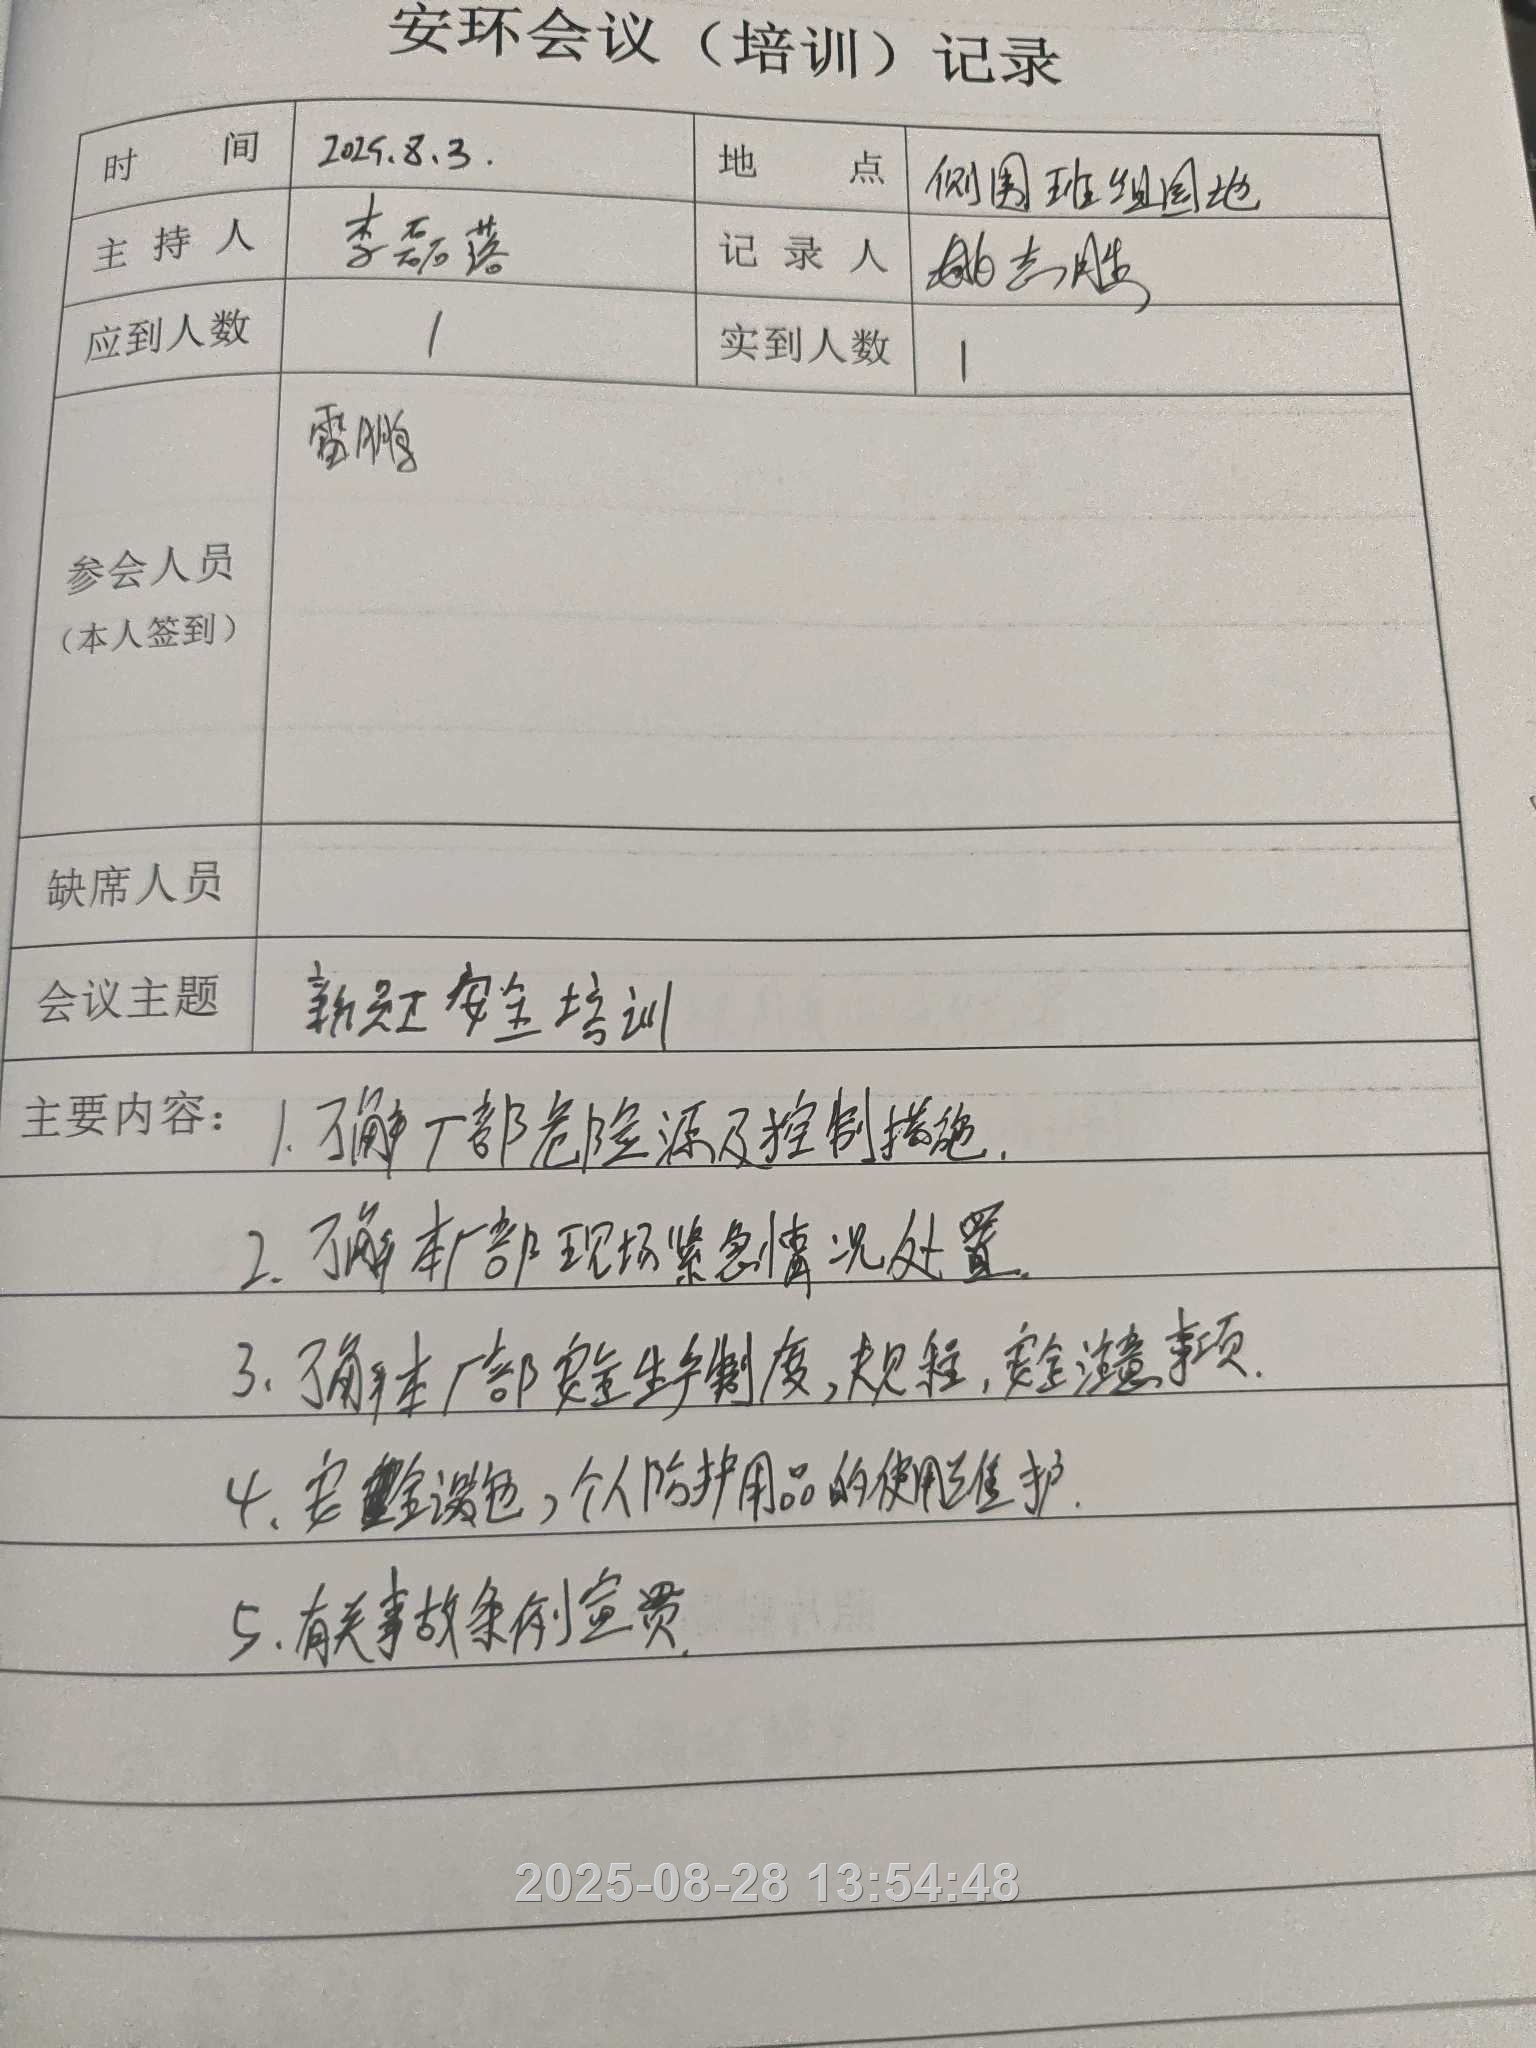 安环会议（培训）记录
时 间 2025.8.3. 地 点 侧围班组园地
主持人 李磊落 记录人 姚志胜
应到人数 1 实到人数 1
雷鹏
参会人员
（本人签到）
缺席人员
会议主题 新员工安全培训
主要内容： 1. 了解厂部危险源及控制措施.
2. 了解本厂部现场紧急情况处置.
3. 了解本厂部安全生产制度,规程,安全注意事项.
4. 安全设备,个人防护用品的使用维护.
5. 有关事故条例宣贯.
2025-08-28 13:54:48